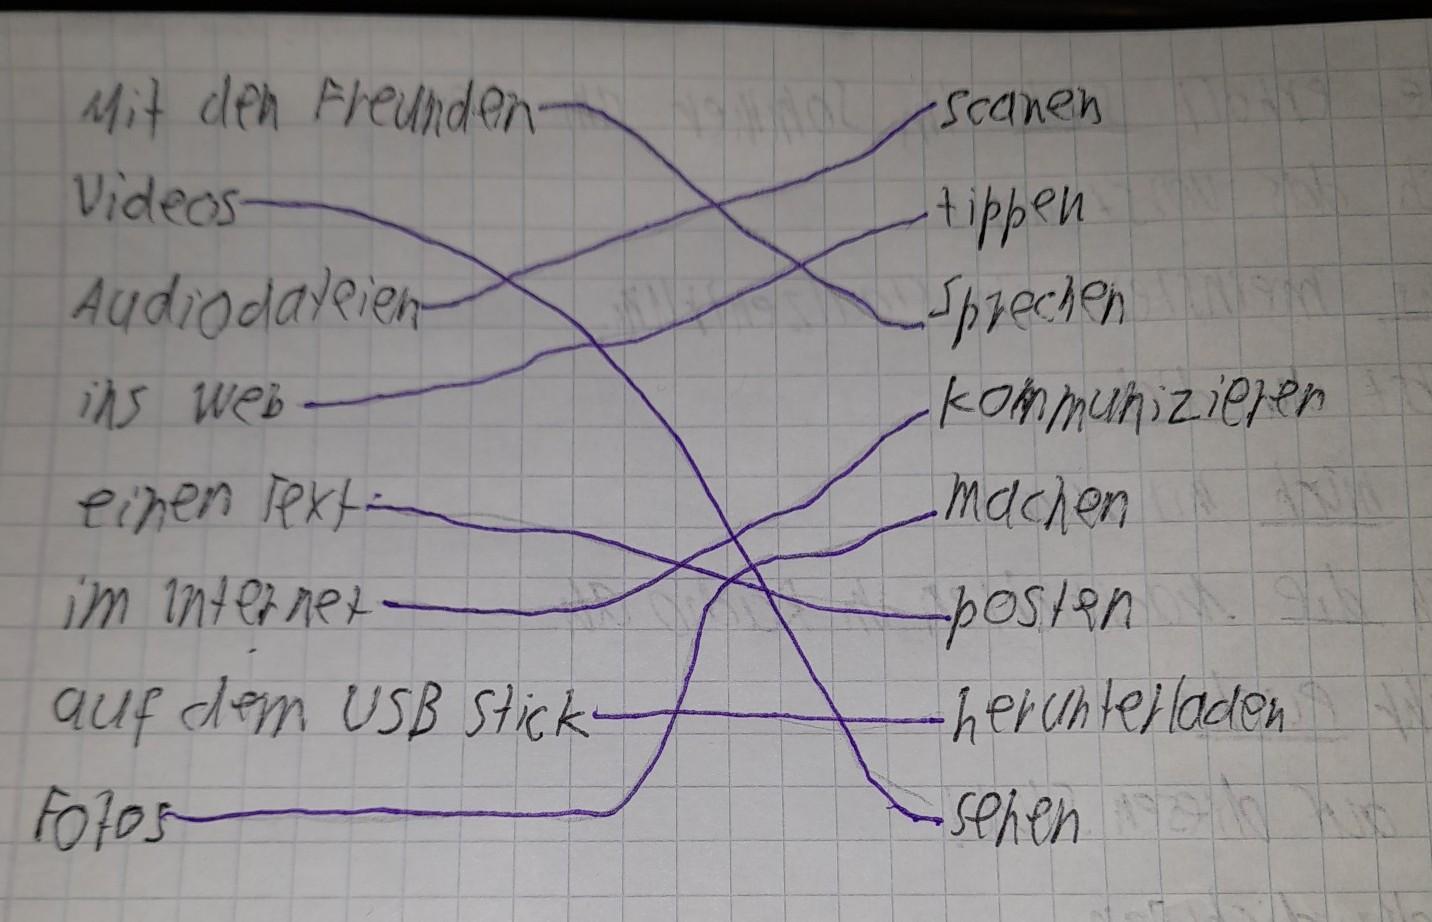 Mit den Freunden scanen
Videos tippen
Audiodateien sprechen
ins Web kommunizieren
einen Text machen
im Internet posten
auf dem USB Stick herunterladen
Fotos sehen